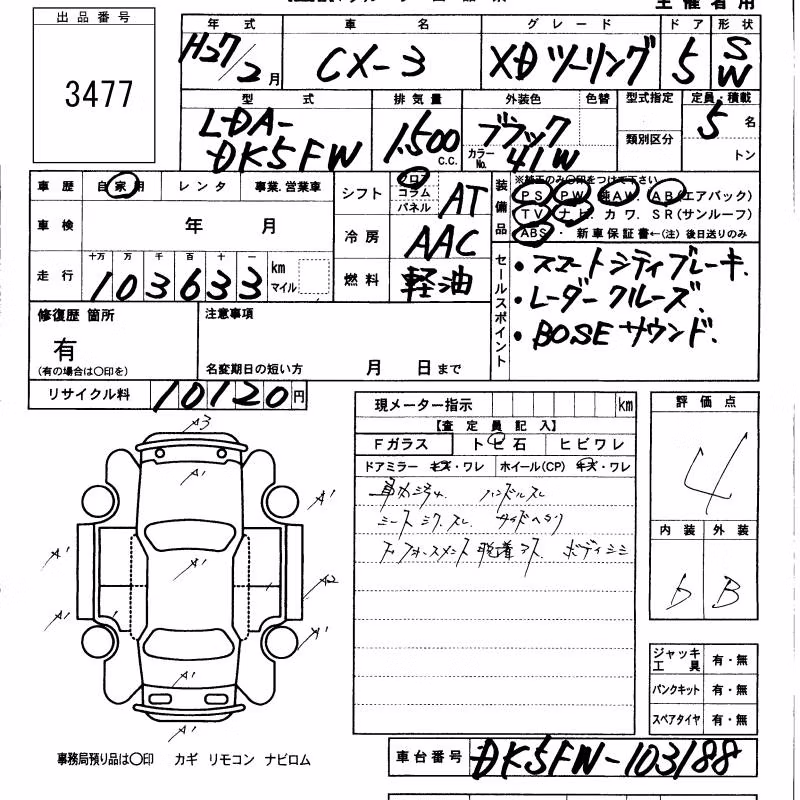 出品番号
3477
年式 車名 グレード ドア 形状
H27/2月 CX-3 XDツーリング 5 SW
型式 排気量 外装色 色替 型式指定 定員・積載
LDA-DK5FW 1,500 c.c. ブラック カラーNo. 41W 類別区分 5名 トン
車歴 自家用 レンタ 事業.営業車 シフト フロア コラム パネル AT
装備品 ※純正のみ○印をつけて下さい
PS PW 純AW. AB(エアバック)
TV ナビ. カワ. SR(サンルーフ)
ABS ・ 新車保証書←(注) 後日送りのみ
車検 年 月 冷房 AAC
走行 十万 万 千 百 十 一
103633 km マイル 燃料 軽油
セールスポイント
・スマートシティブレーキ.
・レーダークルーズ.
・BOSEサウンド.
修復歴 箇所 注意事項
有
(有の場合は○印を) 名変期日の短い方 月 日まで
リサイクル料 10120円
現メーター指示 km
【査定員記入】
Fガラス トビ石 ヒビワレ
ドアミラー キズ・ワレ ホイール(CP) キズ・ワレ
ハンドルスレ
シートシワ.スレ.
脱着
評価点
4
内装 外装
b B
A3
A'
A'
A'
A'
A'
A'
A2
A'
A'
A'
A'
ジャッキ工具 有・無
パンクキット 有・無
スペアタイヤ 有・無
事務局預り品は○印 カギ リモコン ナビロム
車台番号 DK5FW-103188